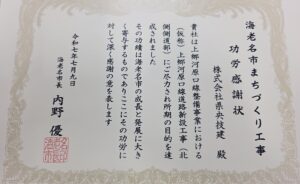 海老名市まちづくり工事
功労感謝状
株式会社県央技建 殿
貴社は上郷河原口線整備事業における
(仮称)上郷河原口線道路新設工事(北
側側道部)にご尽力され所期の目的を達
成されました
その功績は海老名市の成長と発展に大き
く寄与するものでありここにその功労に
対して深く感謝の意を表します
令和七年七月九日
海老名市長 内野 優